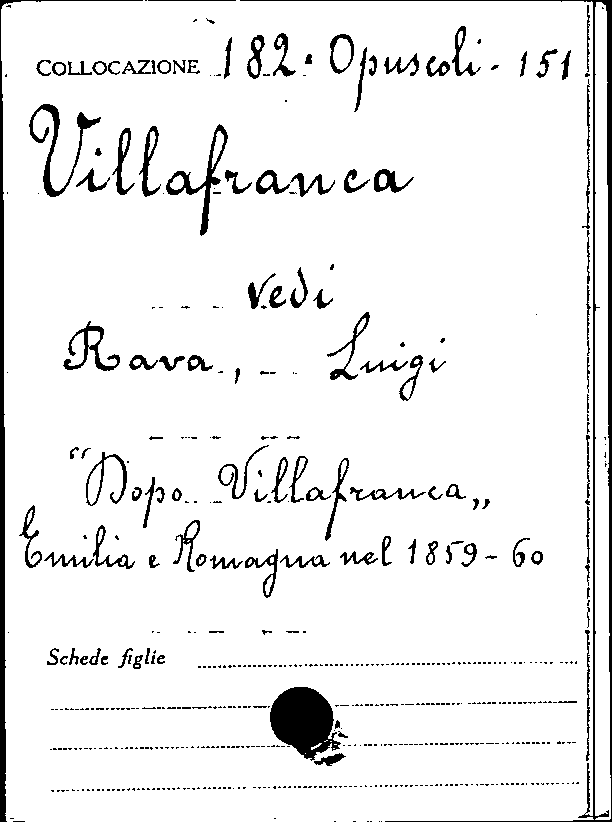 COLLOCAZIONE 182. Opuscoli - 151
Villafranca
vedi
Rava, Luigi
"Dopo Villafranca„
Emilia e Romagna nel 1859-60
Schede figlie